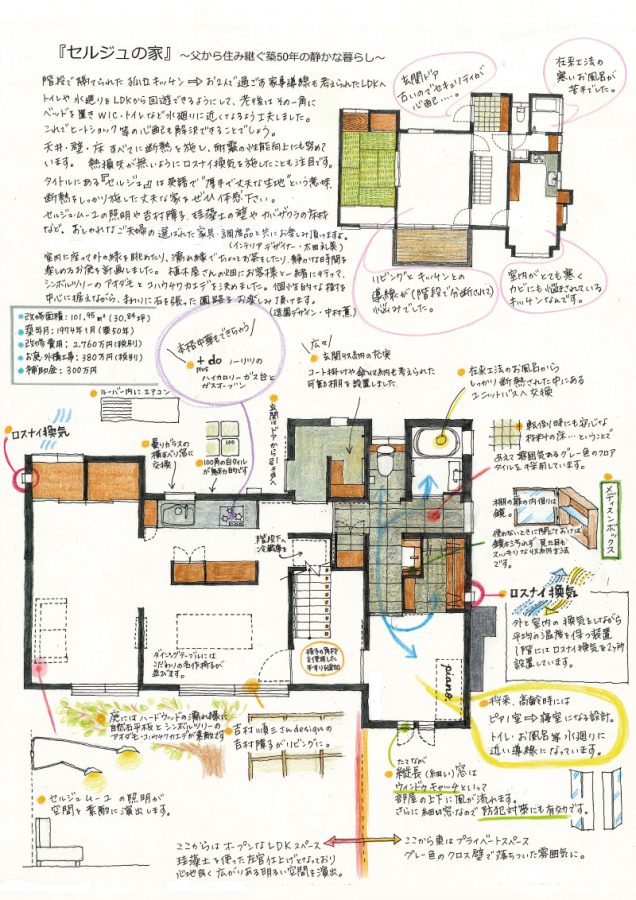 『セルジュの家』 ～父から住み継ぐ築50年の静かな暮らし～
階段で隔てられた孤立キッチン⇒お2人で過ごす家事導線も考えられたLDKへ
トイレや水廻りをLDKから回遊できるようにして、老後はその一角に
ベッドを置きWIC・トイレなど水廻りに近くなるよう工夫しました。
これでヒートショック等の心配も解決できることでしょう。
天井・壁・床すべてに断熱を施し、耐震の性能向上にも努めて
います。 熱損失が無いようにロスナイ換気を施したことも注目です。
タイトルにある『セルジュ』は英語で"厚手で丈夫な生地"という意味。
断熱をしっかり施した丈夫な家をぜひ体感下さい。
セルジュ・ムーユの照明や吉村障子、珪藻土の壁やカバザクラの床材
など、おしゃれなご夫婦の選ばれた家具・調度品と共にお楽しみ頂けますよ。
(インテリアデザイナー・太田礼美)
室内に座って外の緑を眺めたり、濡れ縁でちょっとお茶をしたり、静かな時間を
楽しめるお庭を計画しました。 植木屋さんの畑にお客様と一緒に行って、
シンボルツリーのアオダモとコハウチワカエデを決めました。
中心に据えながら、まわりに石を張った園路をお楽しみ頂けます。
(造園デザイン・中村
●改修面積：101.95㎡(30.84坪)
●築年月：1974年1月(築50年)
●改修費用：2,760万円(税別)
●お庭・外構工事：380万円(税別)
●補助金：300万円
玄関ドア
古いのでセキュリティが
心配……。
在来工法の
寒いお風呂が
苦手でした。
リビングとキッチンとの
導線が(階段で分断されて)
悩みでした。
室内がとても寒く
カビにも悩まされている
キッチンなんです。
本格中華もできちゃう
+do ノーリツの
plus
ハイカロリーガス台と
ガスオーブン
広々
玄関収納の充実
コート掛けや傘収納も考えられた
可動棚を設置しました
在来工法のお風呂から
しっかり断熱された中にある
ユニットバスへ交換
ルーバー内にエアコン
ロスナイ換気
曇りガラスの
横すべり窓に
交換
100
100角の白タイルが
魅力的です
玄関はドアから引き戸へ
転倒時にも安心な
材料の床…ということで
あえて雰囲気あるグレー色のフロア
タイルを採用しています。
棚の扉の内側は
鏡。
使わないときに閉じておけば
鏡は汚れず 見た目も
スッキリな収納方法
です。
メディスンボックス
階段下へ
冷蔵庫を
格子の角材
を使用した
手すりを追加
ダイニングテーブルには
こだわりの名作椅子が
並びます。
piano
ロスナイ換気
外と室内の換気をしながら
平均の温度を保つ装置
1階にはロスナイ換気を2ヶ所
設置しています。
将来、高齢時には
ピアノ室⇒寝室になる設計。
トイレ・お風呂水廻りに
近い導線になっています。
庭にはハードウッドの濡れ縁に
自然石平板とシンボルツリーの
アオダモ・コハウチワカエデが素敵です
吉村順三さんdesignの
吉村障子がリビングに。
たてなが
縦長(細い)窓は
ウィンドウキャッチといって
部屋の上下に風が流れます。
さらに細い窓なので防犯対策にも有効です。
セルジュ ムーユ の照明が
空間を素敵に演出します。
ここからはオープンなLDKスペース
珪藻土を使った左官仕上げとなっており
心地良く広がりある明るい空間を演出。
ここから東はプライベートスペース
グレー色のクロス壁で落ちついた雰囲気に。